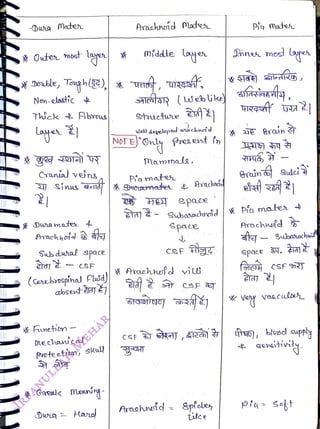 Dura Mater
Arachnoid Mater
Pia Mater
※ Outer most layer
※ Double, Tough (दृढ़),
Non-elastic &
Thick & Fibrous
Layer है|
※ कुछ स्थानों पर
Cranial veins
या Sinus बनाती
है|
※ Duramater &
Arachnoid के बीच
Subdural space
होता है - CSF
(Cerebrospinal Fluid)
absent होता है|
※ Function -
Mechanical
Protection, skull
से जोड़ना
※ Greek Meaning-
Dura = Hard
※ Middle layer
※ पतली, पारदर्शी,
जालीदार (Web like)
Structure होती है|
well developed arachnoid
NOTE Only Present in
Mammals.
Pia mater
※ & Arachnoid
के मध्य space
होता है - Subarachnoid
Space
↓
CSF मौजूद
※ Arachnoid villi
होती है जो CSF का
अवशोषण करती है|
CSF को
सुरक्षा
Arachnoid = Spider
like
Inner most layer
※ सबसे आन्तरिक,
पारदर्शी परत है|
※ यह Brain से
प्रत्यक्ष रूप से
सम्पर्क में -
Brain की Sulci में
धँसी रहती है|
※ Pia mater &
Arachnoid के
बीच - Subarachnoid
space का होता है
जिसमें CSF भरा
होता है|
※ Very vascular
पोषण, blood supply
& sensitivity.
Pia = Soft
IRFANULLAH MEHAR